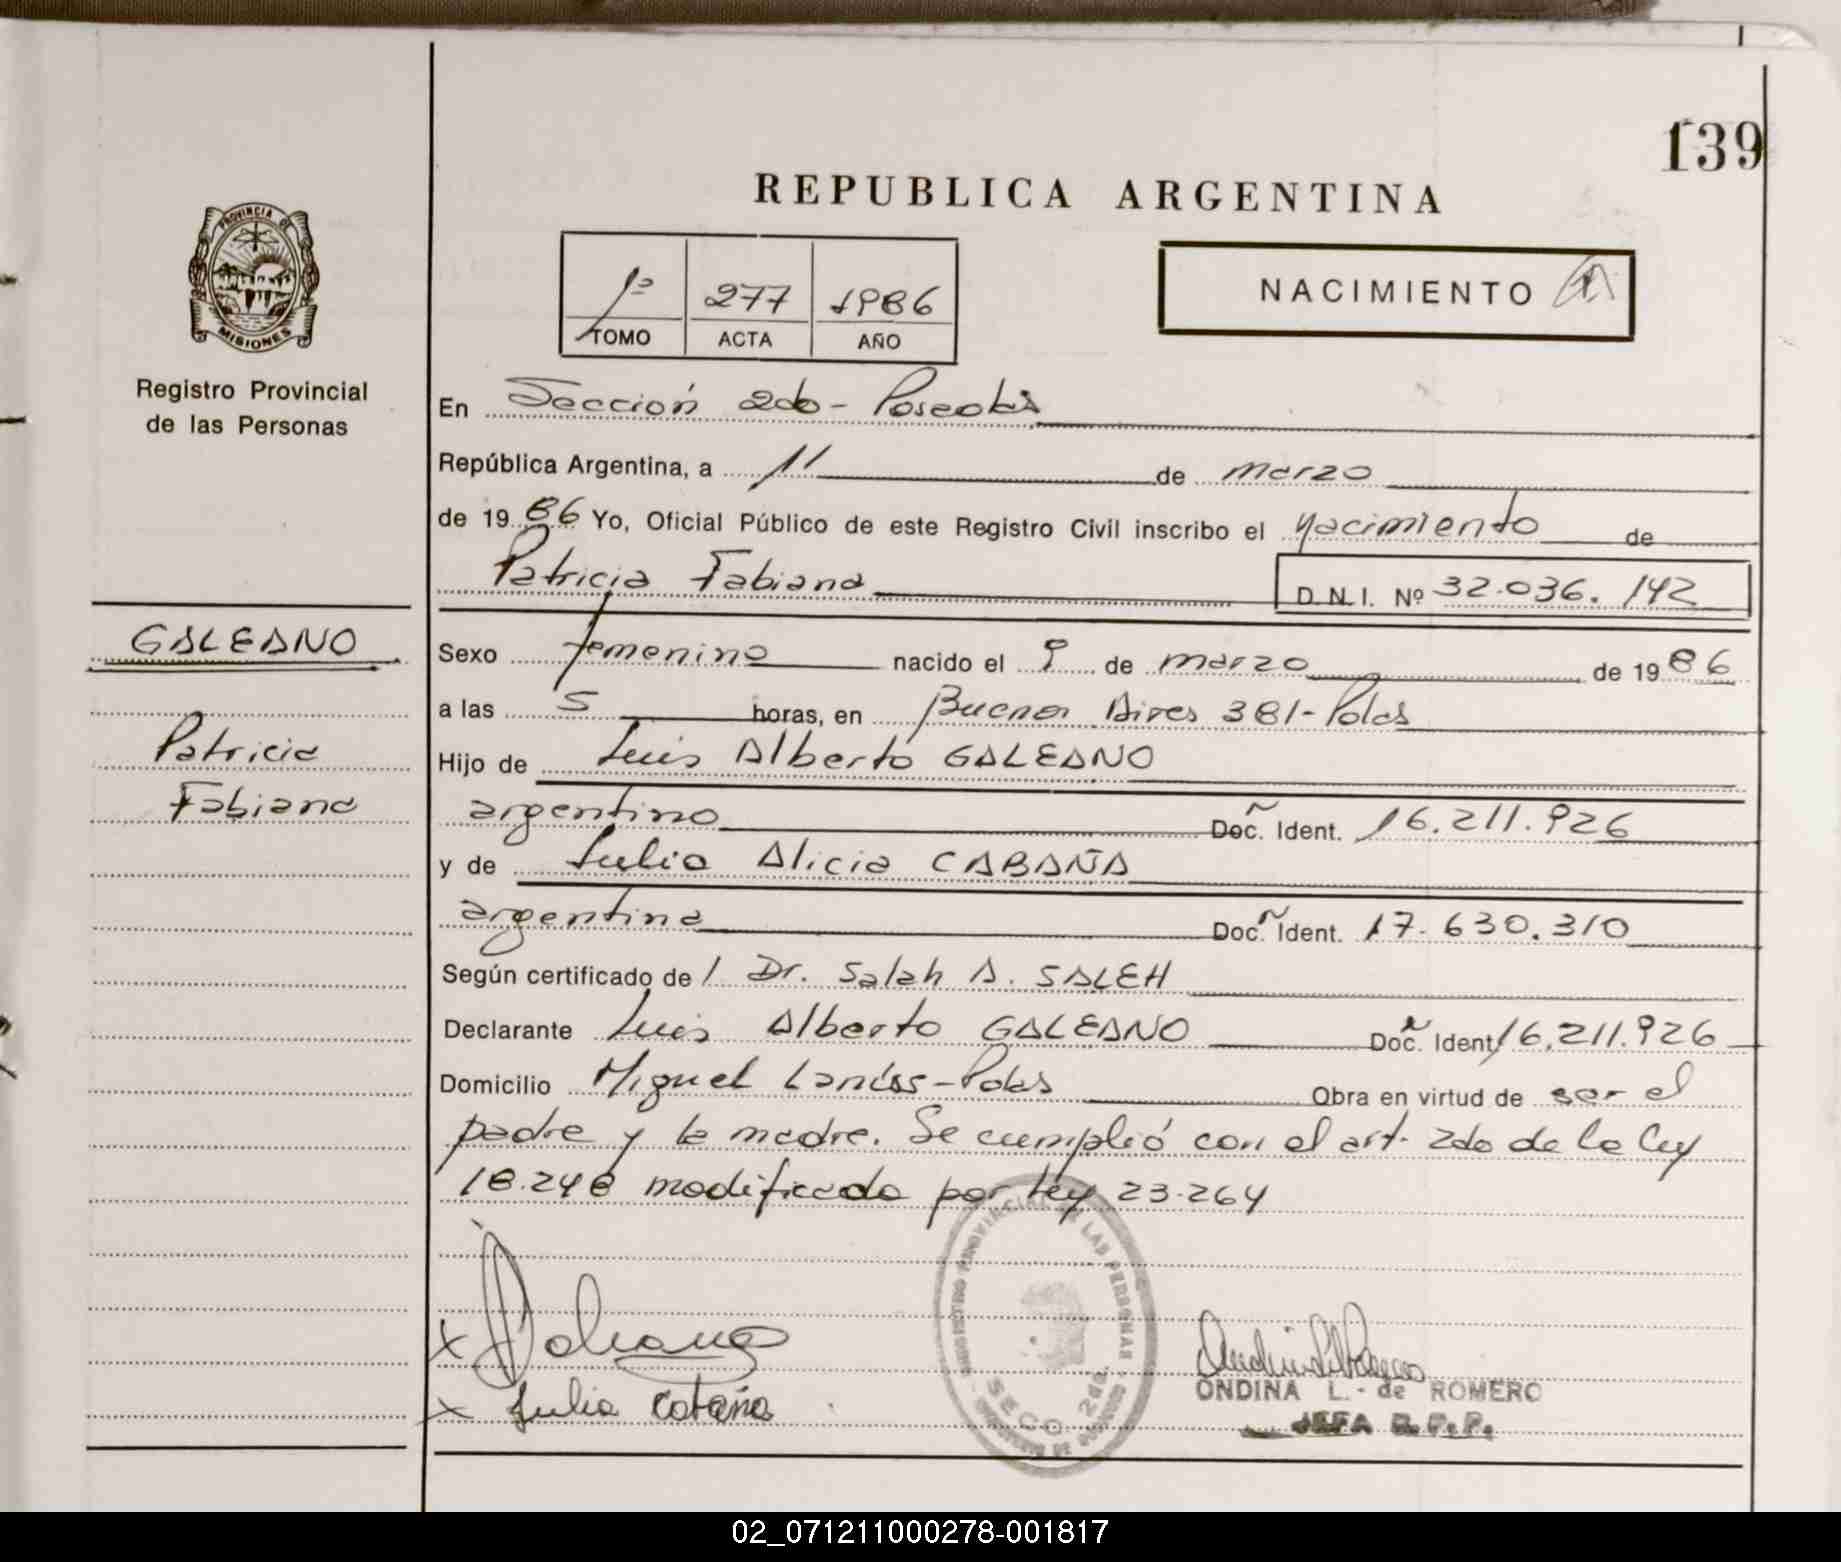 139
REPUBLICA ARGENTINA
PROVINCIA DE
MISIONES
Registro Provincial
de las Personas
1º 277 1986
TOMO ACTA AÑO
NACIMIENTO
En Sección 2do - Posadas
República Argentina, a 11 de marzo
de 1986 Yo, Oficial Público de este Registro Civil inscribo el Nacimiento de
Patricia Fabiana D.N.I. Nº 32.036.142
GALEANO
Patricia
Fabiana
Sexo femenino nacido el 9 de marzo de 1986
a las 5 horas, en Buenos Aires 381 - Pdas
Hijo de Luis Alberto GALEANO
argentino Doc. Ident. 16.211.926
y de Julia Alicia CABAÑA
argentina Doc. Ident. 17.630.310
Según certificado de l Dr. Salah A. SALEH
Declarante Luis Alberto GALEANO Doc. Ident. 16.211.926
Domicilio Miguel - Pdas Obra en virtud de ser el
padre y la madre. Se cumplió con el art. 2do de la ley
18.248 modificada por ley 23.264
REGISTRO PROVINCIAL DE LAS PERSONAS
SECC. 2da.
x
x Julia Cabaña
ONDINA L. de ROMERO
JEFA R.P.P.
02_071211000278-001817